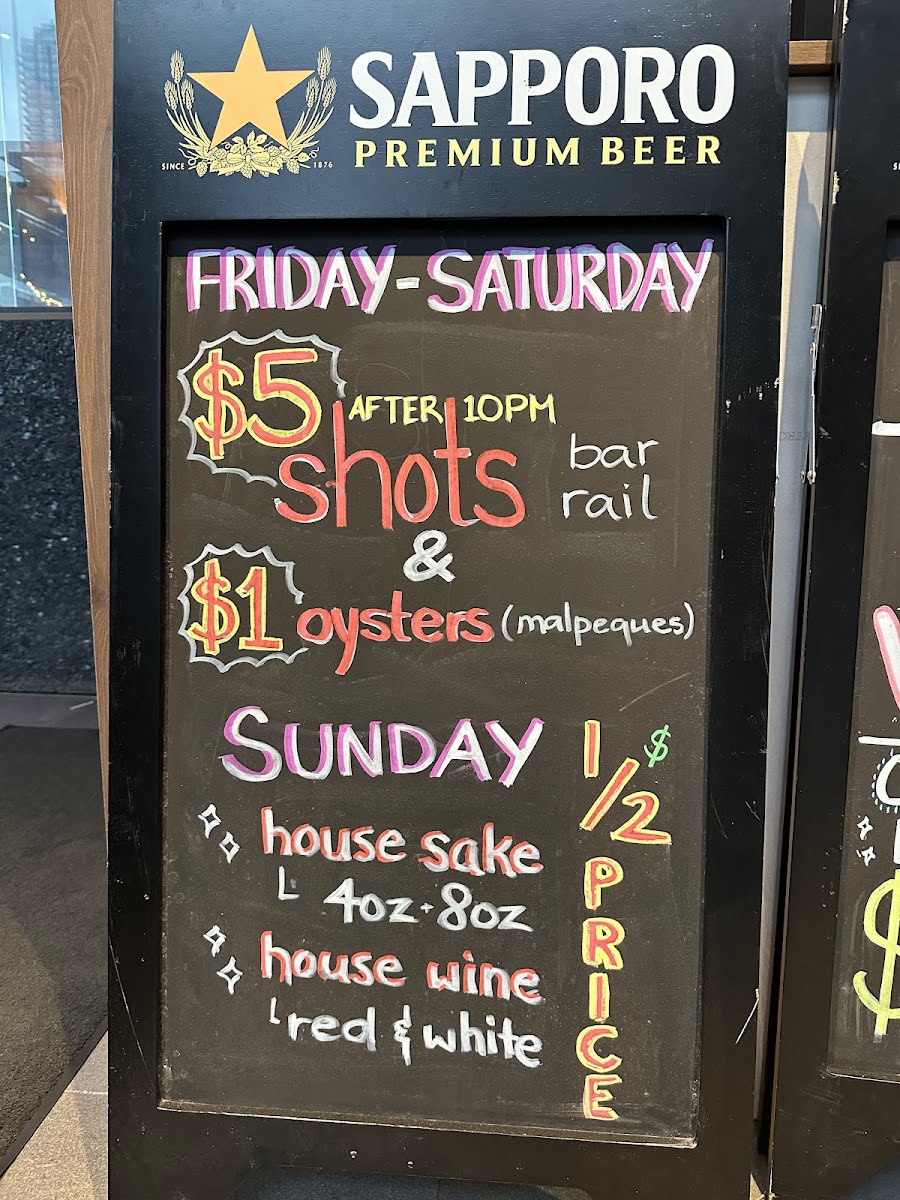 SAPPORO
PREMIUM BEER
SINCE 1876
FRIDAY-SATURDAY
$5 AFTER 10PM
shots bar rail
&
$1 oysters (malpeques)
SUNDAY
house sake
4oz - 8oz
house wine
red & white
$
1/2 PRICE
$